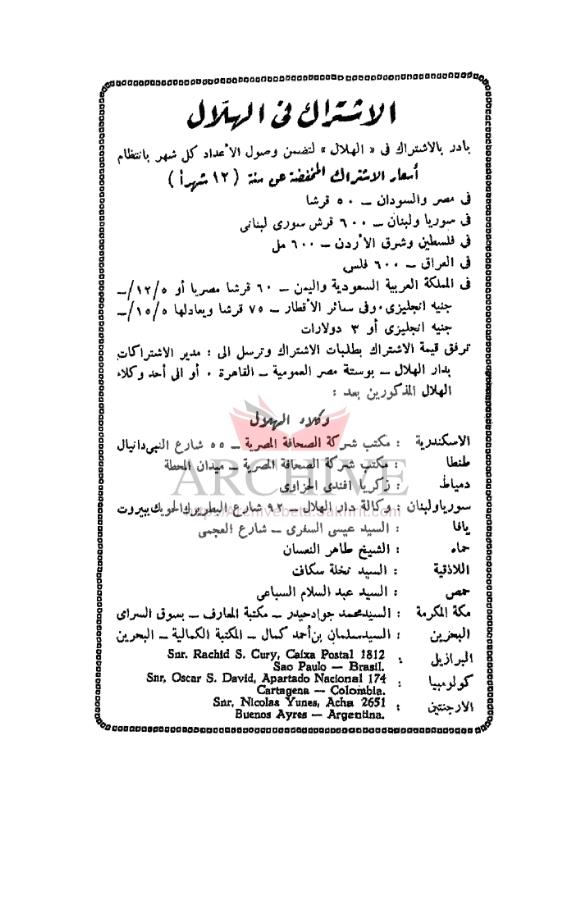 الاشتراك فى الهلال
بادر بالاشتراك فى « الهلال » لتضمن وصول الأعداد كل شهر بانتظام
أسعار الاشتراك المخفضة عن سنة ( ١٢ شهراً )
فى مصر والسودان – ٥٠ قرشا
فى سوريا ولبنان – ٦٠٠ قرش سورى لبنانى
فى فلسطين وشرق الأردن – ٦٠٠ مل
فى العراق – ٦٠٠ فلس
فى المملكة العربية السعودية واليمن – ٦٠ قرشا مصريا أو ١٢/٥/–
جنيه انجليزى ، وفى سائر الأقطار – ٧٥ قرشا ويعادلها ١٥/٥/–
جنيه انجليزى أو ٣ دولارات
ترفق قيمة الاشتراك بطلبات الاشتراك وترسل الى : مدير الاشتراكات
بدار الهلال – بوستة مصر العمومية – القاهرة ٠ أو الى أحد وكلاء
الهلال المذكورين بعد :
وكلاء الهلال
الاسكندرية : مكتب شركة الصحافة المصرية – ٥٥ شارع النبى دانيال
طنطا : مكتب شركة الصحافة المصرية – ميدان المحطة
دمياط : زكريا افندى الخزاوى
ARCHIVE
سوريا ولبنان : وكالة دار الهلال – ٩٢ شارع البطريرك الحويك بيروت
يافا : السيد عيسى السفرى – شارع العجمى
حماه : الشيخ طاهر النعسان
اللاذقية : السيد نخلة سكاف
حمص : السيد عبد السلام السباعى
مكة المكرمة : السيد محمد جواد حيدر – مكتبة المعارف – بسوق السراى
البحرين : السيد سلمان بن أحمد كمال – المكتبة الكمالية – البحرين
البرازيل : Snr. Rachid S. Cury, Caixa Postal 1812
Sao Paulo — Brasil.
كولومبيا : Snr, Oscar S. David, Apartado Nacional 174
Cartagena — Colombia.
الارجنتين : Snr, Nicolas Yunes, Acha 2651
Buenos Ayres — Argentina.